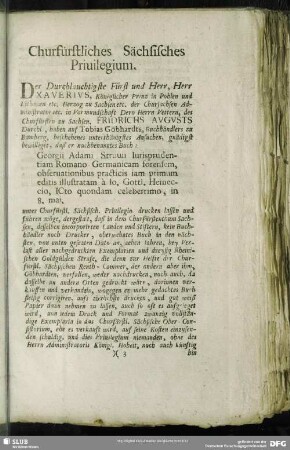 Churfürstliches Sächsisches
Privilegium.
Der Durchlauchtigste Fürst und Herr, Herr
XAVERIVS, Königlicher Prinz in Pohlen und
Litthauen etc. Herzog zu Sachsen etc. der Churfachsen Ad-
ministrator etc. in Vormundschaft Dero Herrn Vetters, des
Churfürsten zu Sachsen, FRIDRICHS AVGVSTS
Durchl. haben auf Tobias Göbhardts, Buchhändlers zu
Bamberg, beschehenes unterthänigstes Ansuchen, gnädigst
bewilliget, daß er nachbenanntes Buch:
Georgii Adami Struuii Jurispruden-
tiam Romano Germanicam forensem,
obseruationibus practicis iam primum
editis illustratam à Io. Gottl. Heinec-
cio, ICto quondam celeberrimo, in
8. mai.
unter Churfürstl. Sächsisch. Privilegio drucken lassen und
führen möge, dergestalt, daß in dem Churfürstenthum Sach-
sen, desselben incorporirten Landen und Stiftern, kein Buch-
händler noch Drucker, oberwähntes Buch in den näch-
sten, von unten gesetzten Dato an, zehen Jahren, bey Ver-
lust aller nachgedruckten Exemplarien und dreyßig Rheini-
schen Goldgülden Strafe, die denn zur Helfte der Chur-
fürstl. Sächsischen Renth-Cammer, der andere aber ihm,
Göbhardten, verfallen, weder nachdrucken, noch auch, da
dasselbe an andern Orten gedruckt wäre, darinnen ver-
kauffen und verhandeln, wogegen er mehr gedachtes Buch
fleißig corrigiren, aufs zierlichste drucken, und gut weiß
Papier dazu nehmen zu lassen, auch so oft es aufgeleget
wird, von jedem Druck und Format zwanzig vollständi-
ge Exemplaria in das Churfürstl. Sächsische Ober-Con-
sistorium, ehe es verkauft wird, auf seine Kosten einzusen-
den schuldig, und dies Privilegium niemanden, ohne des
Herrn Administratoris Königl. Hoheit, noch auch künftig
)( 3
hin
SLUB
DFG